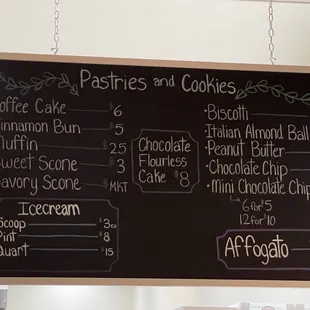 Pastries and Cookies
Coffee Cake $6
Cinnamon Bun $5
Muffin $25
Sweet Scone $3
Savory Scone $MKT
Chocolate
Flourless
Cake $8
•Biscotti
•Italian Almond Ball
•Peanut Butter
•Chocolate Chip
•Mini Chocolate Chip
6 for $5
12 for $10
Icecream
Scoop $3ea
Pint $8
Quart $15
Affogato